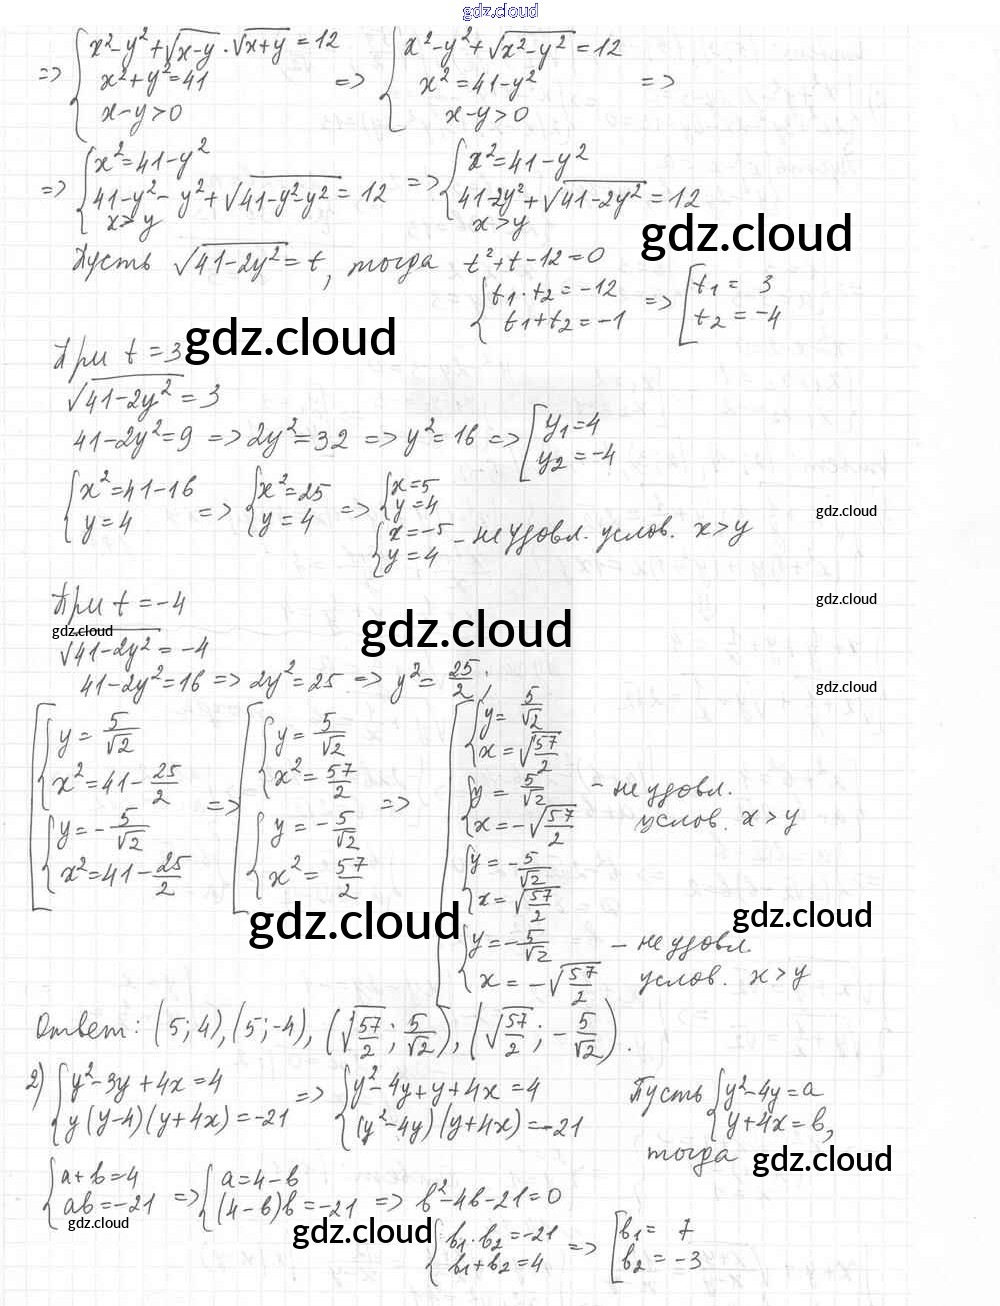 gdz.cloud
=> { x²-y²+√(x-y)·√(x+y) = 12
x²+y²=41
x-y>0
=> { x²-y²+√(x²-y²) = 12
x²=41-y²
x-y>0 =>
=> { x²=41-y²
41-y²-y²+√(41-y²-y²) = 12
x>y
=> { x²=41-y²
41-2y²+√(41-2y²) = 12
x>y
gdz.cloud
Пусть √(41-2y²) = t, тогда t²+t-12=0
{ t₁·t₂=-12
t₁+t₂=-1
=> [ t₁= 3
t₂=-4
При t=3
gdz.cloud
√(41-2y²) = 3
41-2y²=9 => 2y²=32 => y²=16 => [ y₁=4
y₂=-4
{ x²=41-16
y=4
=> { x²=25
y=4
=> { x=5
y=4
{ x=-5
y=4 - не удовл. услов. x>y
gdz.cloud
При t=-4
gdz.cloud
gdz.cloud
gdz.cloud
√(41-2y²) = -4
41-2y²=16 => 2y²=25 => y²=25/2;
gdz.cloud
[ { y=5/√2
x²=41-25/2
{ y=-5/√2
x²=41-25/2
=> [ { y=5/√2
x²=57/2
{ y=-5/√2
x²=57/2
=> [ { y=5/√2
x=√(57/2)
{ y=5/√2
x=-√(57/2) - не удовл. услов. x>y
{ y=-5/√2
x=√(57/2)
{ y=-5/√2
x=-√(57/2) - не удовл. услов. x>y
gdz.cloud
gdz.cloud
Ответ: (5;4),(5;-4),(√(57/2); 5/√2),(√(57/2); -5/√2).
2) { y²-3y+4x=4
y(y-4)(y+4x)=-21
=> { y²-4y+y+4x=4
(y²-4y)(y+4x)=-21
Пусть { y²-4y=a
y+4x=b,
тогда
gdz.cloud
{ a+b=4
ab=-21
=> { a=4-b
(4-b)b=-21 => b²-4b-21=0
gdz.cloud
gdz.cloud
{ b₁·b₂=-21
b₁+b₂=4
=> [ b₁= 7
b₂=-3